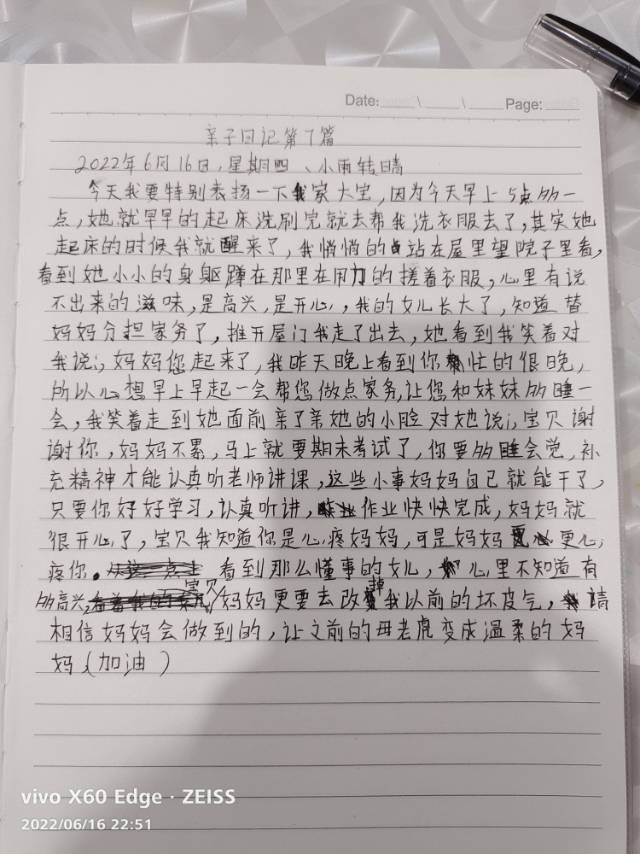 Date: \ \ Page:
亲子日记第7篇
2022年6月16日,星期四、小雨转晴
今天我要特别表扬一下我家大宝,因为今天早上5点多一
点,她就早早的起床洗刷完就去帮我洗衣服去了,其实她
起床的时候我就醒来了,我悄悄的站在屋里望院子里看,
看到她小小的身躯蹲在那里在用力的搓着衣服,心里有说
不出来的滋味,是高兴,是开心,,我的女儿长大了,知道替
妈妈分担家务了,推开屋门我走了出去,她看到我笑着对
我说:,妈妈您起来了,我昨天晚上看到你忙的很晚,
所以心想早上早起一会帮您做点家务,让您和妹妹多睡一
会,我笑着走到她面前亲了亲她的小脸对她说:,宝贝谢
谢你,妈妈不累,马上就要期末考试了,你要多睡会觉,补
充精神才能认真听老师讲课,这些小事妈妈自己就能干了,
只要你好好学习,认真听讲,作业快快完成,妈妈就
很开心了,宝贝我知道你是心疼妈妈,可是妈妈更心
疼你。看到那么懂事的女儿,心里不知道有
多高兴,宝贝妈妈要去改掉我以前的坏皮气,请
相信妈妈会做到的,让之前的母老虎变成温柔的妈
妈(加油)
vivo X60 Edge · ZEISS
2022/06/16 22:51